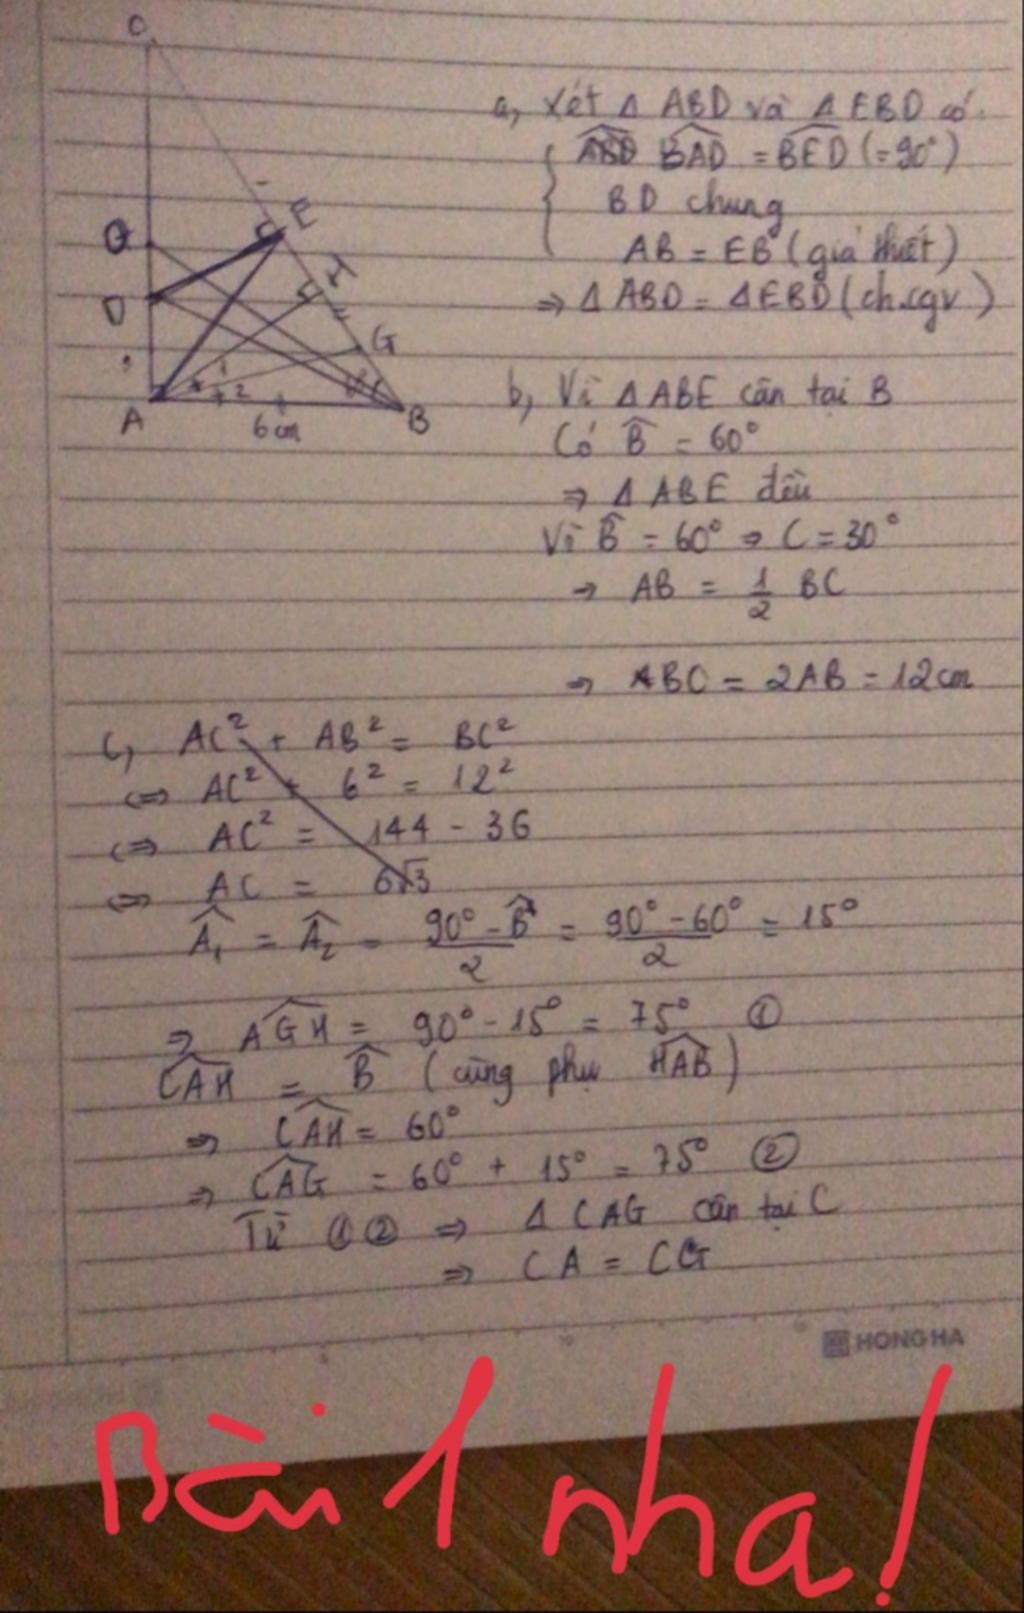 C
E
Q
H
D
G
1
2
A
6cm
B
a, Xét Δ ABD và Δ EBD có.
ABD BAD = BED (=90°)
BD chung
AB = EB (giả thiết)
⇒ Δ ABD = Δ EBD (ch.cgv)
b, Vì Δ ABE cân tại B
Có B̂ = 60°
⇒ Δ ABE đều
Vì B̂ = 60° ⇒ C = 30°
⇒ AB = 1/2 BC
⇒ BC = 2AB = 12cm
c, AC² + AB² = BC²
⇔ AC² + 6² = 12²
⇔ AC² = 144 - 36
⇔ AC = 6√3
Â₁ = Â₂ = (90° - B̂)/2 = (90° - 60°)/2 = 15°
⇒ AGH = 90° - 15° = 75° ①
CAH = B̂ (cùng phụ HAB)
⇒ CAH = 60°
⇒ CAG = 60° + 15° = 75° ②
Từ ① ② ⇒ Δ CAG cân tại C
⇒ CA = CG
HONG HA
Bài 1 nha!